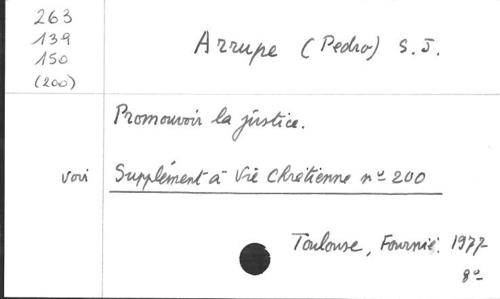 263
139
150
(200)
Arrupe (Pedro) S.J.
Promouvoir la justice.
voir Supplément à Vie Chrétienne n° 200
Toulouse, Fournié. 1977
8°